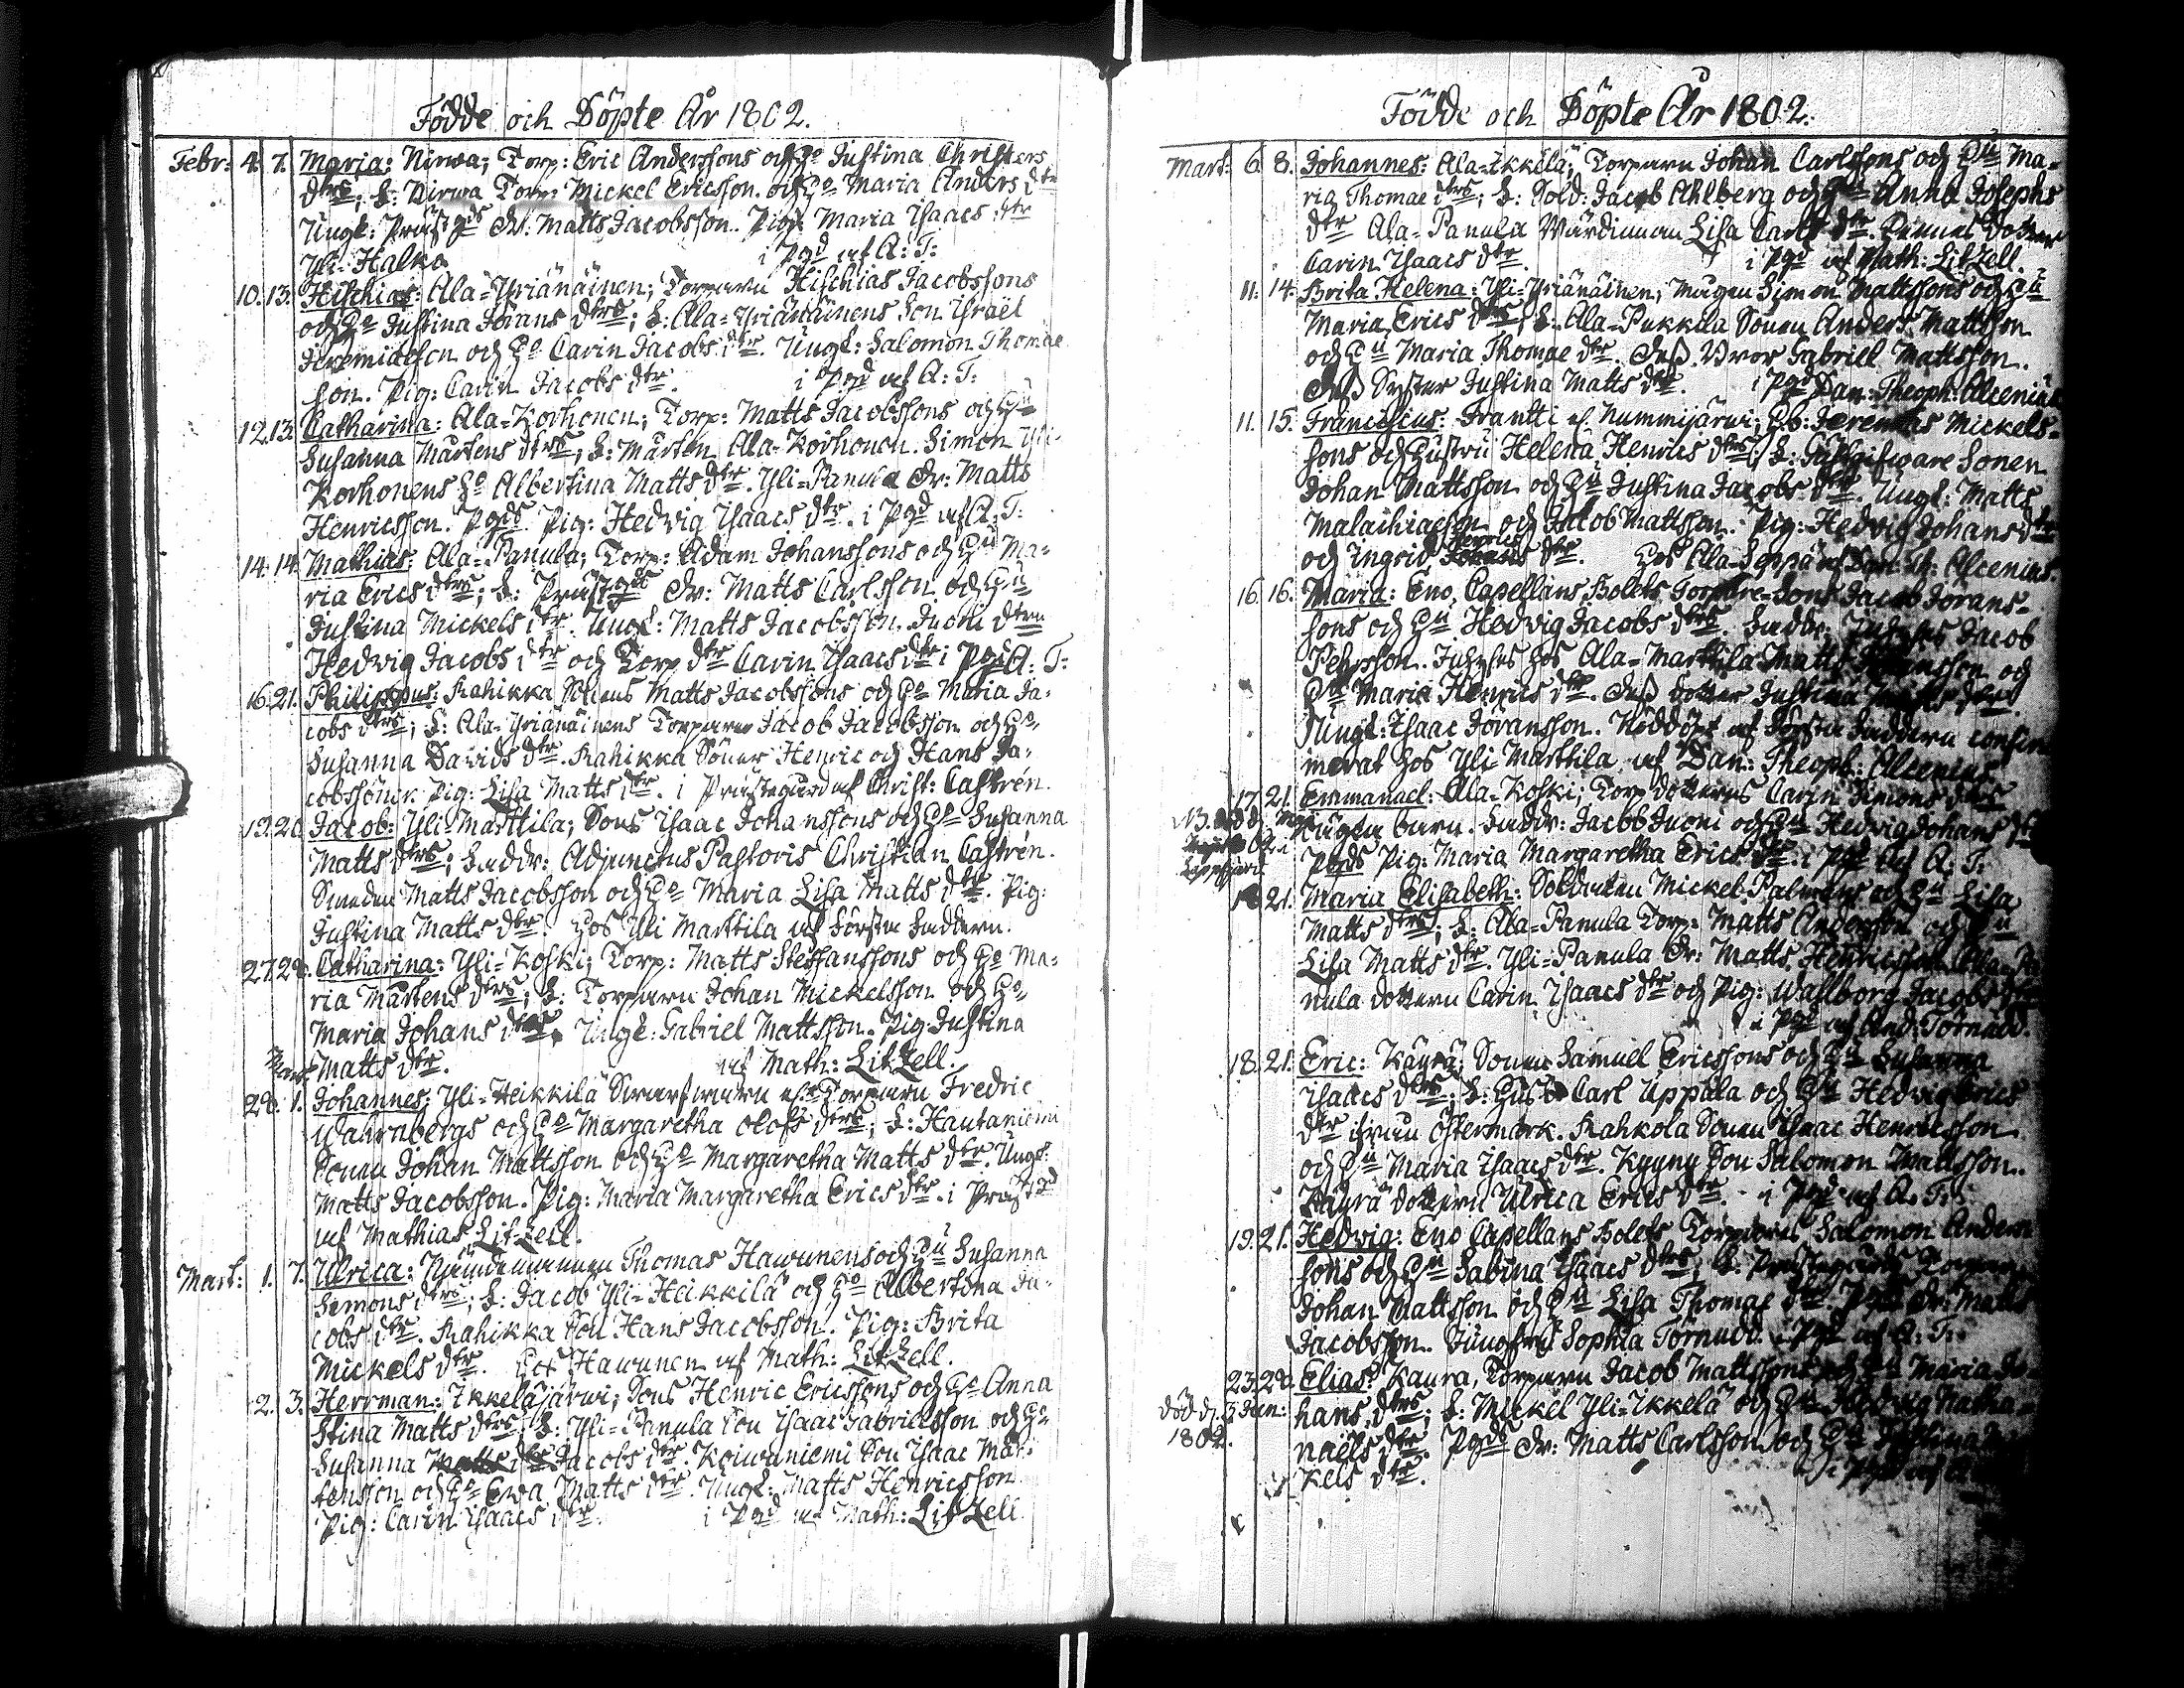 Födde och Döpte År 1802.
Febr: 4. 7. Maria: Nirwa; Torp: Eric Anderssons och H° Justina Christers
dtrs; S: Nirwa Torp: Mickel Ericsson och H° Maria Anders dtr
Ungk: Prästgds Dr: Matts Jacobsson. Pig: Maria Isaacs dtr
Yli-Halko i Pgd af A: T:
10. 13. Hischias: Ala-Yriänäinen; Torparn Hischias Jacobssons
och H° Justina Jörans dtrs; S: Ala-Yriänäinens Son Israël
Jeremiaeson och H° Carin Jacobs dtr. Ungk: Salomon Thomae
son. Pig: Carin Jacobs dtr. i Pgd af A: T:
12. 13. Catharina: Ala-Korhonen; Torp: Matts Jacobssons och Hu
Susanna Mårtens dtrs; S: Mårten Ala-Korhonen. Simon Yli-
Korhonens H° Albertina Matts dtr. Yli-Panula Dr: Matts
Henricsson. Pgds Pig: Hedvig Isaacs dtr. i Pgd af A: T:
14. 14. Mathias: Ala-Panula; Torp: Adam Johanssons och Hu Ma-
ria Erics dtrs; S: Prästgds Dr: Matts Carlsson och Hu
Justina Mickels dtr. Ungk: Matts Jacobsson. Juoni dtrn
Hedvig Jacobs dtr och Torp dtr Carin Isaacs dtr i Pgd A: T:
16. 21. Philippus: Rahikka Sonens Matts Jacobssons och H° Maria Ja-
cobs dtrs; S: Ala-Yriänäinens Torparen Jacob Jacobsson och H°
Susanna Davids dtr. Rahikka Söner Henric och Hans Ja-
cobssöner. Pig: Lisa Matts dtr. i Prästegård af Christ: Castrén.
19. 20. Jacob: Yli-Marttila; Sons Isaac Johanssons och H° Susanna
Matts dtrs; Faddr: Adjunctus Pastoris Christian Castrén.
Smeden Matts Jacobsson och H° Maria Lisa Matts dtr. Pig:
Justina Matts dtr. Hos Yli Marttila af Första Faddern.
27. 28. Catharina: Yli-Koski; Torp: Matts Steffanssons och H° Ma-
ria Mårtens dtrs; S: Torparn Johan Mickelsson och H°
Maria Johans dtr. Ungk: Gabriel Mattsson. Pig Justina
Mart Matts dtr. af Math: Litzell.
28. 1. Johannes: Yli-Heikkilä Torparn Fredric
Wahrnbergs och H° Margaretha Olofs dtrs; S: Hautaniemi
Sonen Johan Mattsson och H° Margaretha Matts dtr. Ungk:
Matts Jacobsson. Pig: Maria Margaretha Erics dtr. i Prästgd
af Mathias Litzell.
Mart: 1. 7. Ulrica: Nämndemannen Thomas Hawunens och Hu Susanna
Simons dtrs; S: Jacob Yli-Heikkilä och H° Albertina Ja-
cobs dtr. Rahikka Son Hans Jacobsson. Pig: Brita
Mickels dtr. Hos Hawunen af Math: Litzell.
2. 3. Herrman: Ikkeläjärwi; Sons Henric Ericssons och H° Anna
Stina Matts dtrs; S: Yli-Panula Son Isaac Gabrielsson och H°
Susanna Matts dtr Jacobs dtr. Koiwuniemi Son Isaac Mår-
tensson och H° Ewa Matts dtr. Ungk: Matts Henricsson
Pig: Carin Isaacs dtr. i Pgd af Math: Litzell
Födde och Döpte År 1802.
Mart: 6. 8. Johannes: Ala-Ikkelä; Torparn Johan Carlssons och Hu Ma-
ria Thomae dtrs; S: Sold: Jacob Ahlberg och Hu Anna Josephs
dtr Ala-Panula Wärdinnan Lisa Carls dtr. Dotter
Carin Isaacs dtr. i Pgd af Math: Litzell.
11. 14. Brita Helena: Yli-Yriänäinen; Mågen Simon Mattssons och Hu
Maria Erics dtrs; S: Ala-Pukkila Sonen Anders Mattsson
och Hu Maria Thomae dtr. Dess Bror Gabriel Mattsson.
Dess Syster Justina Matts dtr. i Pgd Dan: Theoph: Alcenius
11. 15. Franciscus: Frantti af Nummijärwi; Jeremias Mickels-
sons och Hustru Helena Henrics dtrs; S: Sonen
Johan Mattsson och Hu Justina Jacobs dtr. Ungk: Matts
Malachiaeson och Jacob Mattsson. Pig: Hedvig Johans dtr
och Ingrid Henrics dtr. Hos Ala-Seppä af Dan: Th: Alcenius.
16. 16. Maria: Eno, Capellans Bolets Torpare-Sons Jacob Jörans-
sons och Hu Hedvig Jacobs dtrs. Faddr: Jacob
Pehrsson. hos Ala-Marttila Matts och
Hu Maria Henrics dtr. Dess dotter Justina
Ungk: Isaac Jöransson. Nöddöpt af Första Faddern confir-
merat hos Yli Marttila af Dan: Theoph: Alcenius
17. 21. Emmanuel: Ala-Koski; Torp dotterns Carin Simons dtrs
barn. Faddr: Jacob Juoni och Hu Hedvig Johans dtr
Pgds Pig: Maria Margaretha Erics dtr i Pgd af A: T:
21. Maria Elisabeth: Soldaten Mickel Palmgrens och Hu Lisa
Matts dtrs; S: Ala-Panula Torp: Matts Andersson och Hu
Lisa Matts dtr. Yli-Panula Dr: Matts Henricsson. Ala-Pa-
nula dottern Carin Isaacs dtr och Pig: Wahlborg Jacobs dtr
i Pgd af And: Törnudd.
18. 21. Eric: Käyrä; Sonen Samuel Ericssons och Hu Susanna
Isaacs dtrs; S: Carl Uppala och Hu Hedvig Erics
dtr ifrån Östermark. Rahkola Sonen Isaac Henricsson
och Hu Maria Isaacs dtr. Kyyny Son Salomon Mattsson.
Käyrä dottern Ulrica Erics dtr. i Pgd af A: T:
19. 21. Hedvig: Eno Capellans Bolets Torparens Salomon Anders-
sons och Hu Sabina Isaacs dtrs; S: Prästegårds
Johan Mattsson och Hu Lisa Thomae dtr. Pgds Dr: Matts
Jacobsson. Jungfru Sophia Törnudd. i Pgd af A: T:
23. 28. Elias: Kaura, Torparn Jacob Mattssons och Hu Maria Jo-
död d. 3 Jun: hans dtrs; S: Mickel Yli-Ikkelä och Hu Hedvig Natha-
1802. naëls dtr. Pgds Dr: Matts Carlsson och H° Justina
kels dtr. i Pgd af